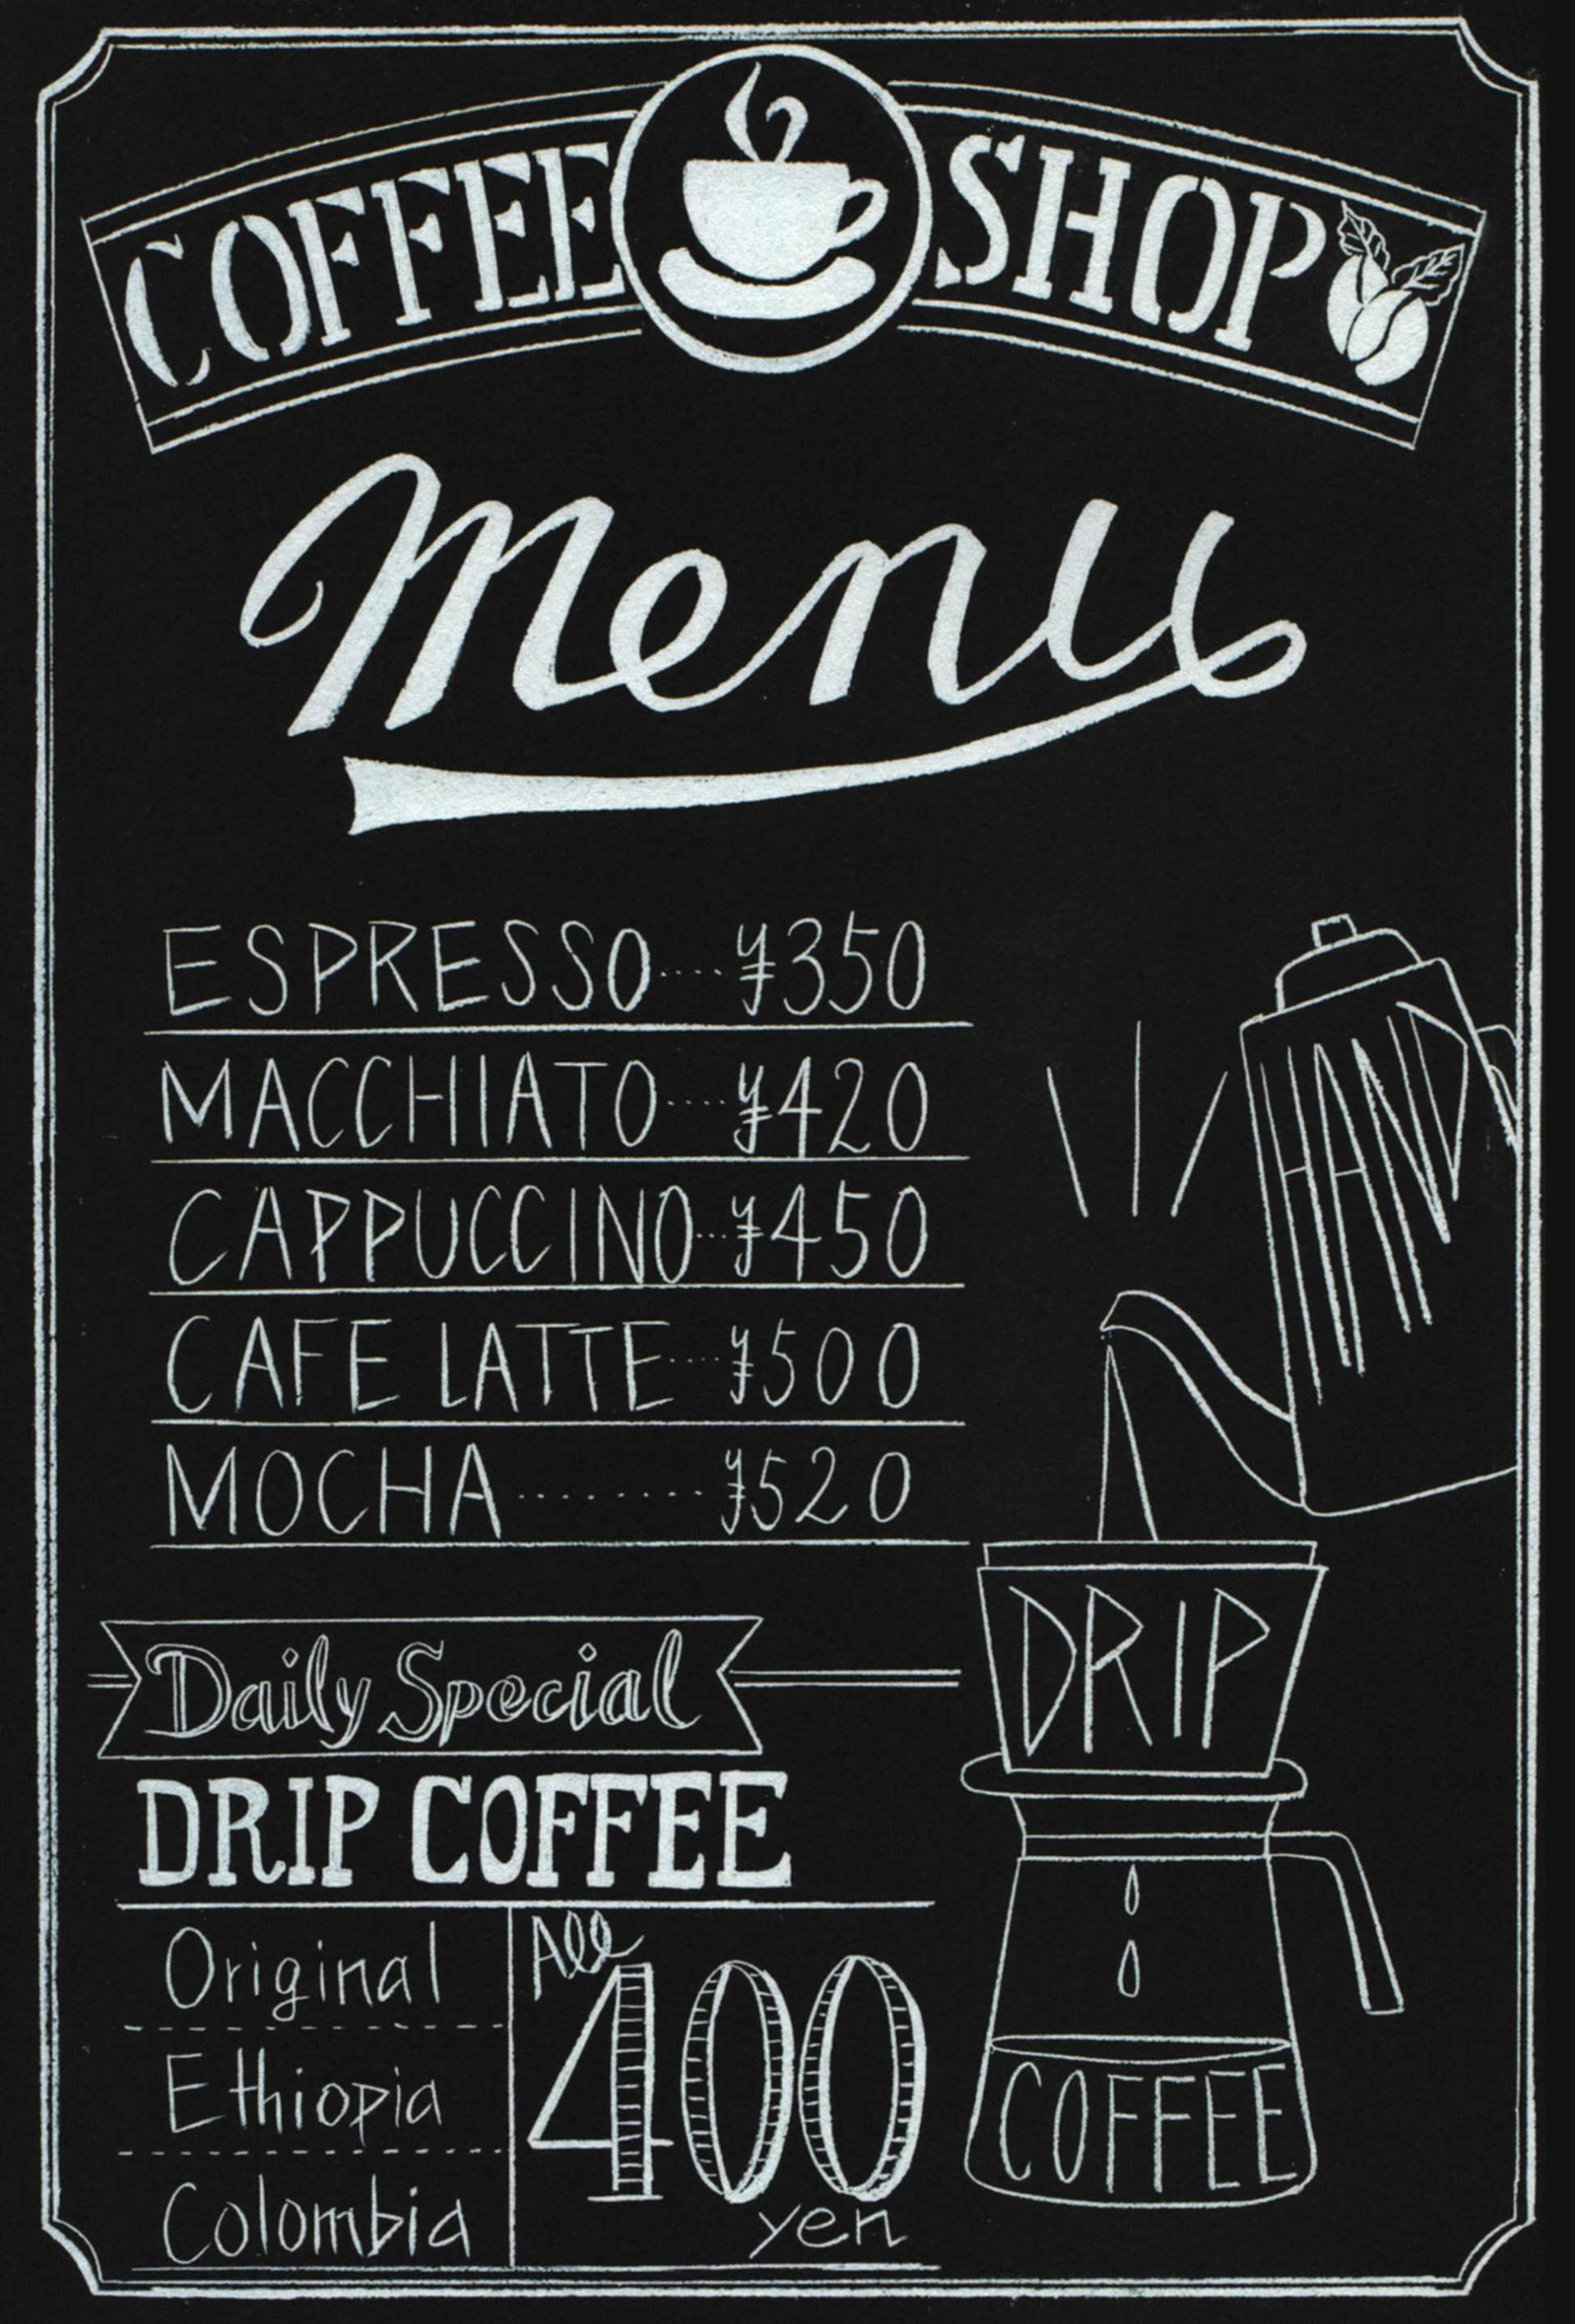 COFFEE SHOP
Menu
ESPRESSO....¥350
MACCHIATO....¥420
CAPPUCCINO...¥450
CAFE LATTE....¥500
MOCHA.........¥520
HAND
DRIP
COFFEE
Daily Special
DRIP COFFEE
Original
Ethiopia
Colombia
All
400
yen